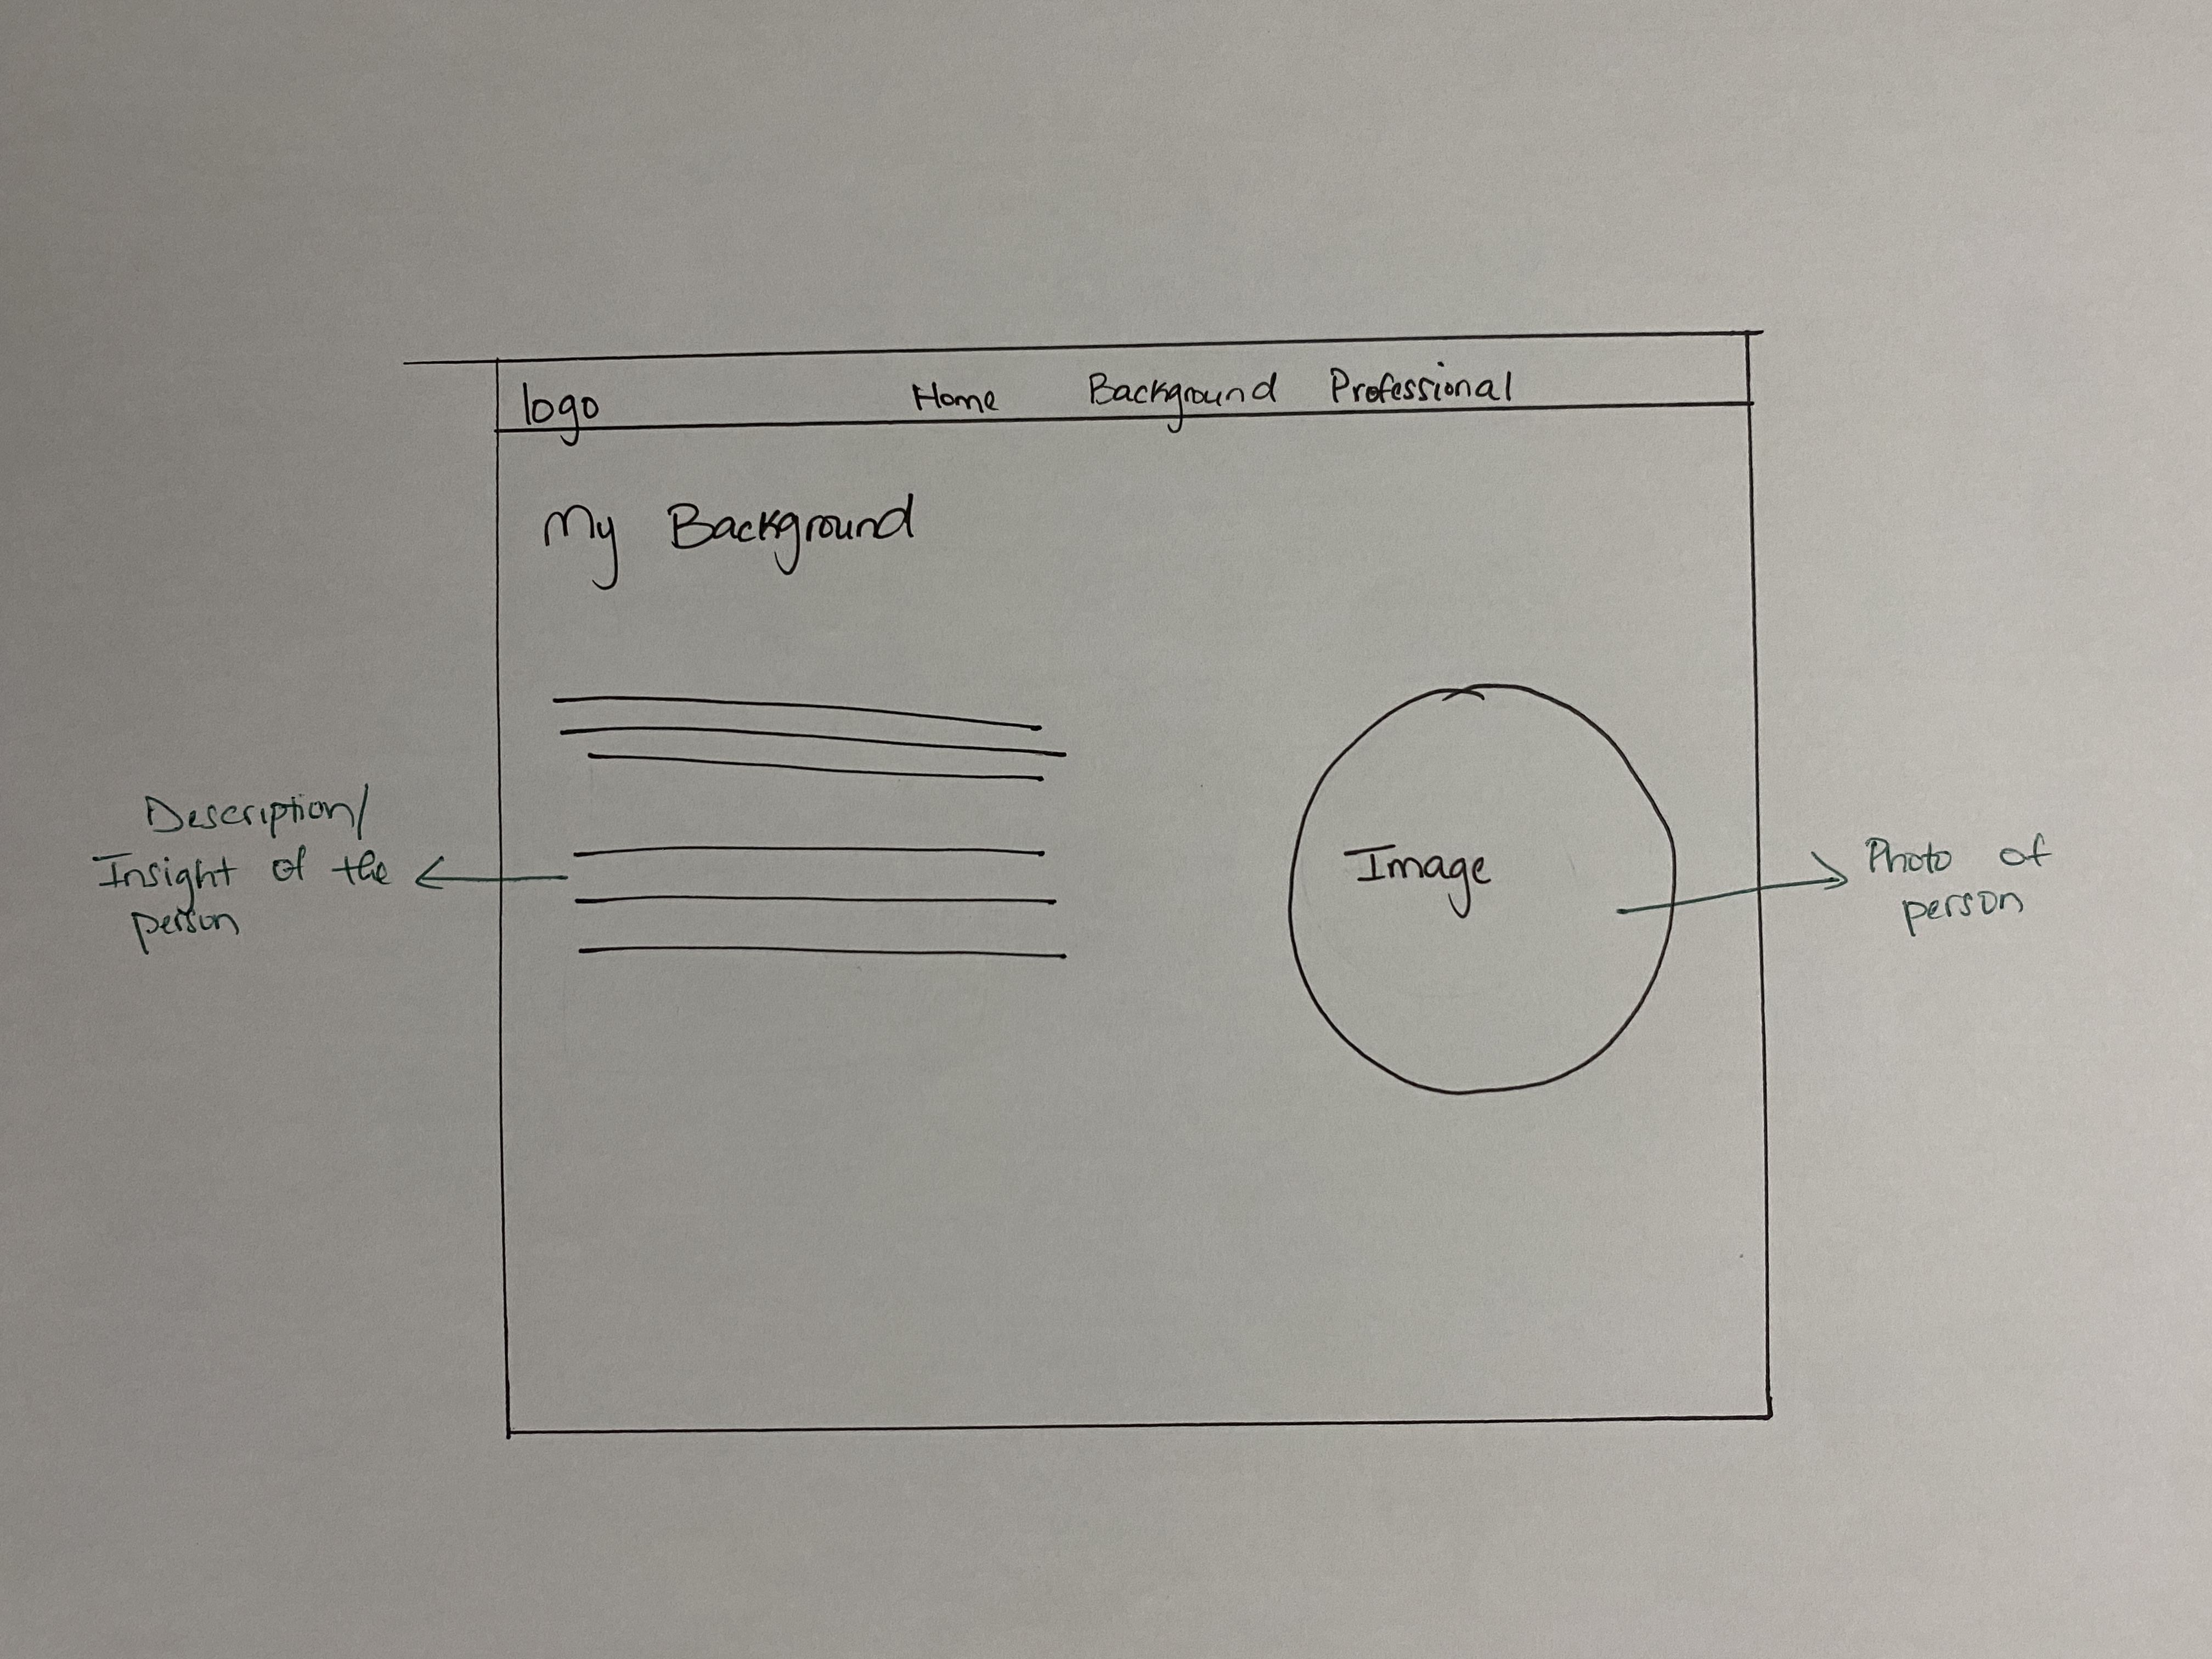 logo Home Background Professional
My Background
Description/
Insight of the
person
Image
Photo of
person